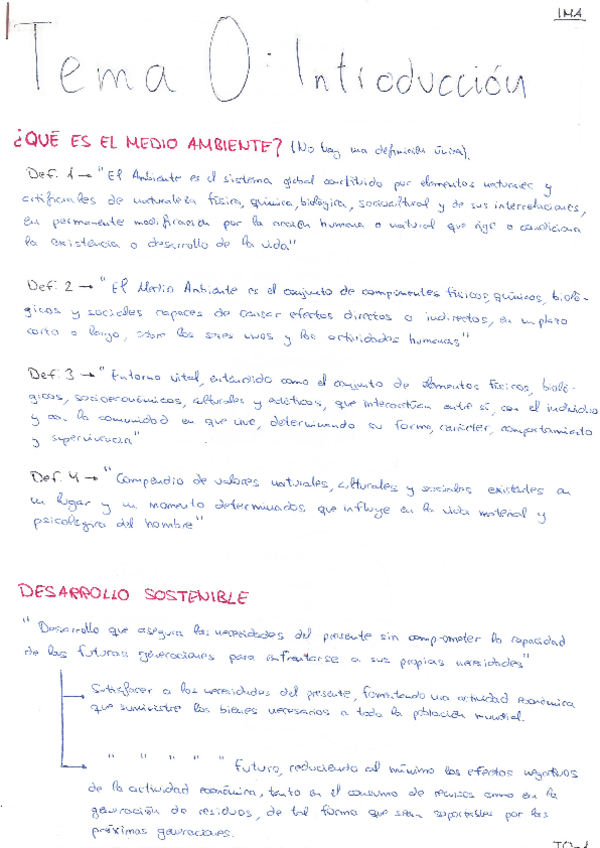 IMA
Tema 0: Introducción
¿QUÉ ES EL MEDIO AMBIENTE? (No hay una definición única).
Def. 1 → "El Ambiente es el sistema global constituido por elementos naturales y
artificiales de naturaleza física, química, biológica, sociocultural y de sus interrelaciones,
en permanente modificación por la acción humana o natural que rige o condiciona
la existencia o desarrollo de la vida"
Def. 2 → "El Medio Ambiente es el conjunto de componentes físicos, químicos, bioló-
gicos y sociales capaces de causar efectos directos o indirectos, en un plazo
corto o largo, sobre los seres vivos y las actividades humanas"
Def. 3 → "Entorno vital, entendido como el conjunto de elementos físicos, bioló-
gicos, socioeconómicos, culturales y estéticos, que interactúan entre sí, con el individuo
y con la comunidad en que vive, determinando su forma, carácter, comportamiento
y supervivencia"
Def. 4 → "Compendio de valores naturales, culturales y sociales existentes en
un lugar y un momento determinados que influye en la vida material y
psicológica del hombre"
DESARROLLO SOSTENIBLE
"Desarrollo que asegura las necesidades del presente sin comprometer la capacidad
de las futuras generaciones para enfrentarse a sus propias necesidades"
→ Satisfacer a las necesidades del presente, fomentando una actividad económica
que suministre los bienes necesarios a toda la población mundial.
" " " " " futuro, reduciendo al mínimo los efectos negativos
de la actividad económica, tanto en el consumo de recursos como en la
generación de residuos, de tal forma que sean soportables por las
próximas generaciones.